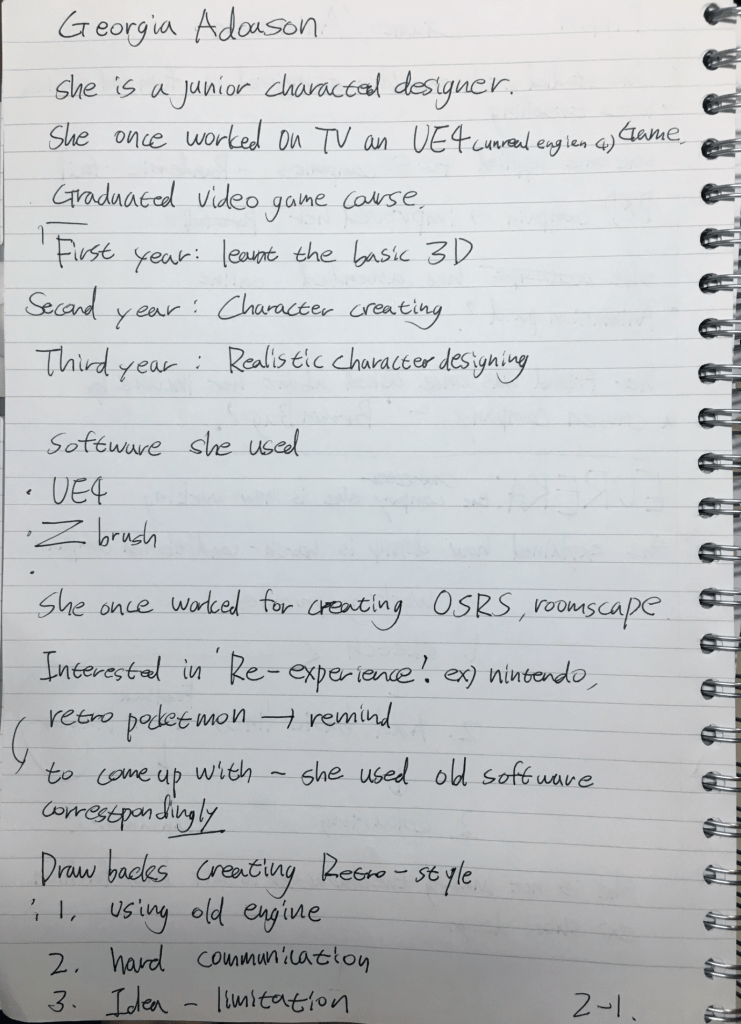 Georgia Adoason
she is a junior characted designer.
She once worked on TV an UE4 (unreal engien 4) Game.
Graduated video game course.
First year: learnt the basic 3D
Second year : Character creating
Third year : Realistic character designing
Software she used
· UE4
· Z brush
·
She once worked for creating OSRS, roomscape
Interested in 'Re-experience'. ex) nintendo,
retro pocketmon → remind
to come up with ~ she used old software
correstpondingly
Drawbacks creating Retro-style
; 1. using old engine
2. hard communication
3. Idea - limitation
2-1.